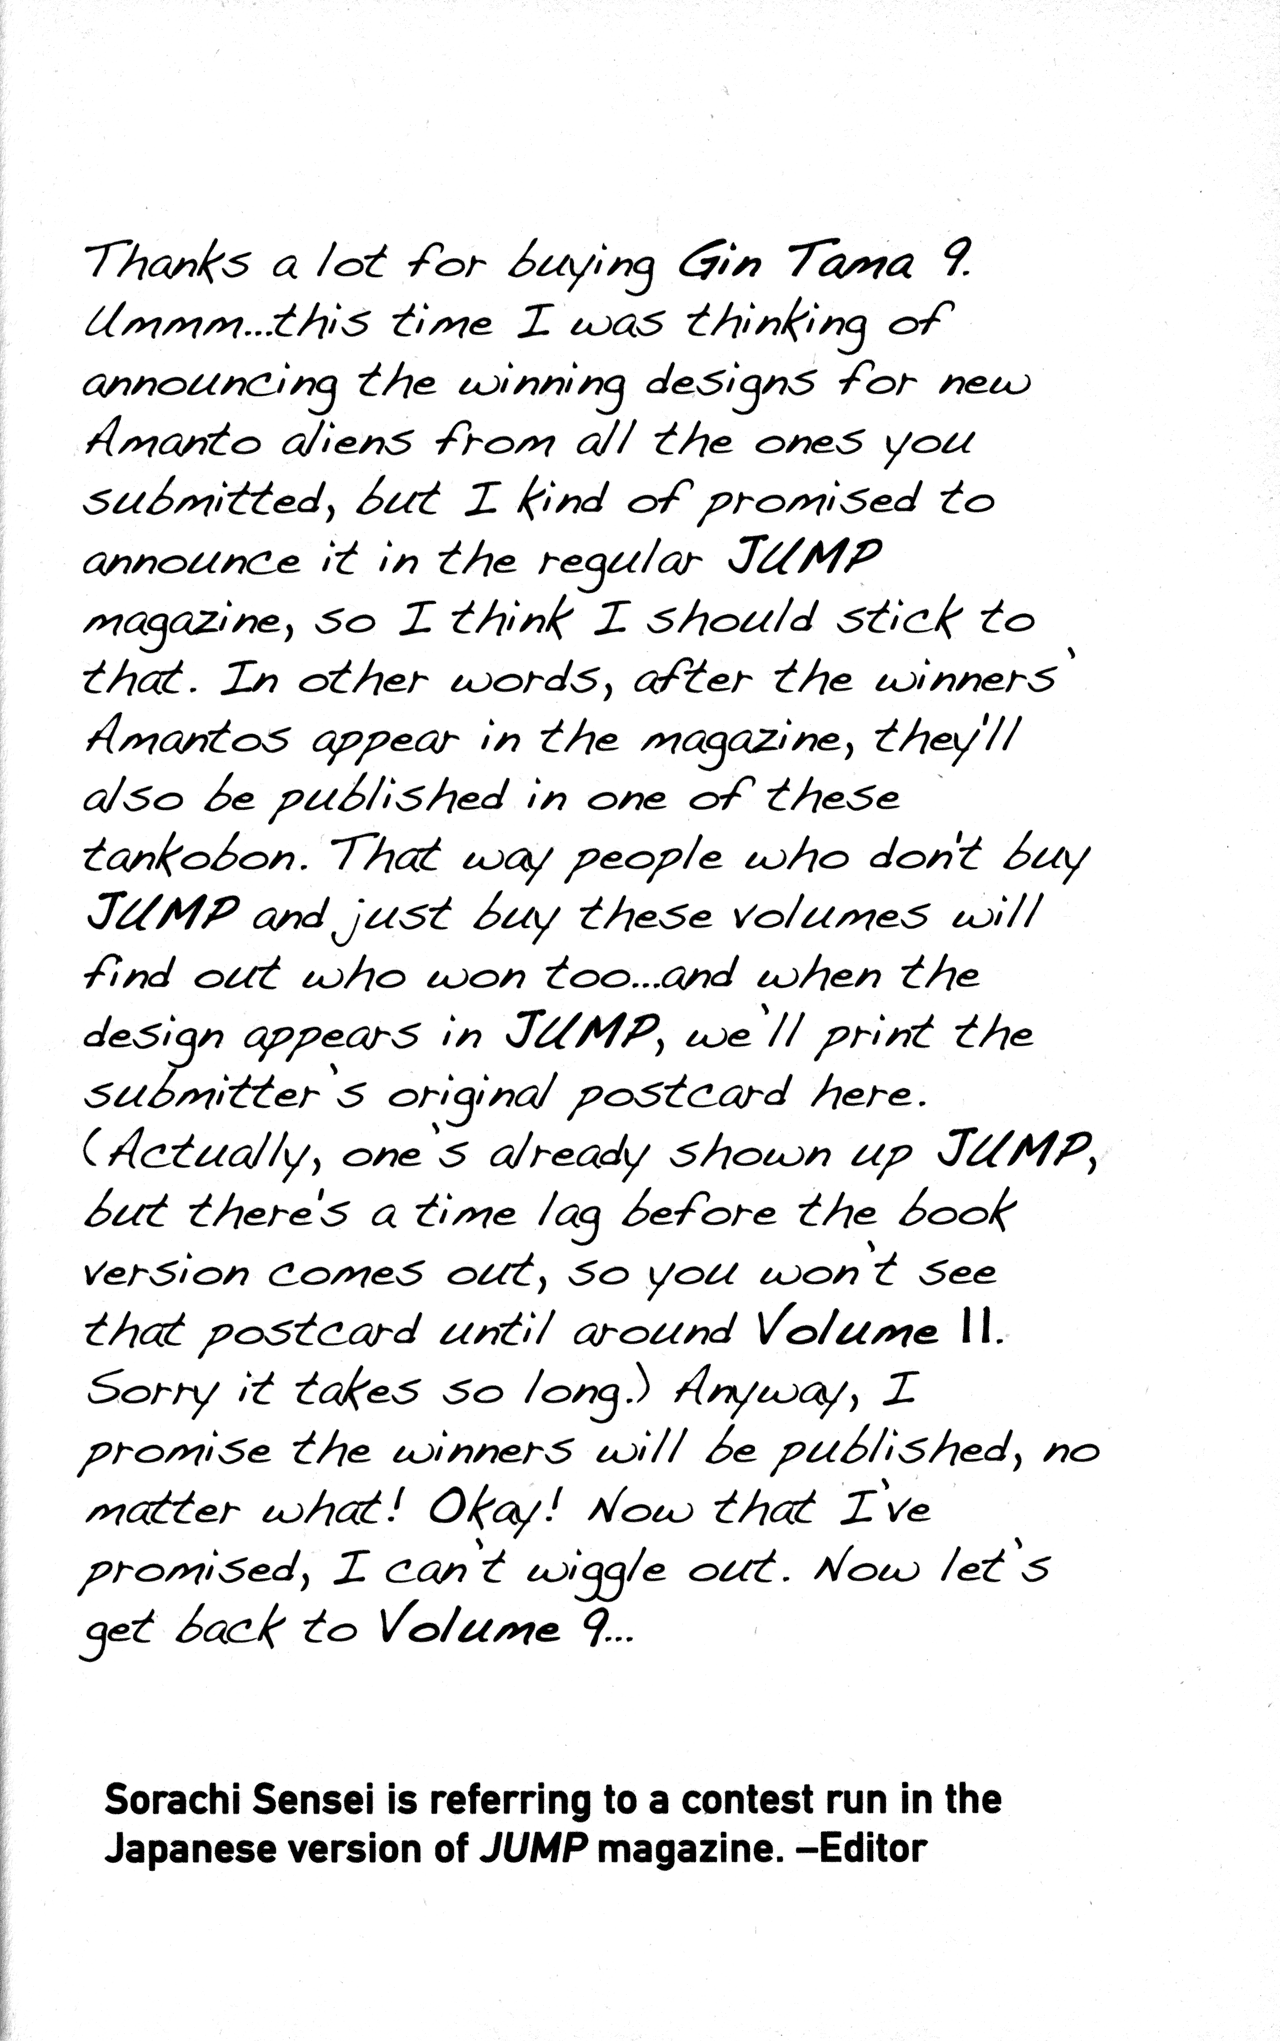 Thanks a lot for buying Gin Tama 9.
Ummm...this time I was thinking of
announcing the winning designs for new
Amanto aliens from all the ones you
submitted, but I kind of promised to
announce it in the regular JUMP
magazine, so I think I should stick to
that. In other words, after the winners'
Amantos appear in the magazine, they'll
also be published in one of these
tankobon. That way people who don't buy
JUMP and just buy these volumes will
find out who won too...and when the
design appears in JUMP, we'll print the
submitter's original postcard here.
(Actually, one's already shown up JUMP,
but there's a time lag before the book
version comes out, so you won't see
that postcard until around Volume 11.
Sorry it takes so long.) Anyway, I
promise the winners will be published, no
matter what! Okay! Now that I've
promised, I can't wiggle out. Now let's
get back to Volume 9...
Sorachi Sensei is referring to a contest run in the
Japanese version of JUMP magazine. –Editor